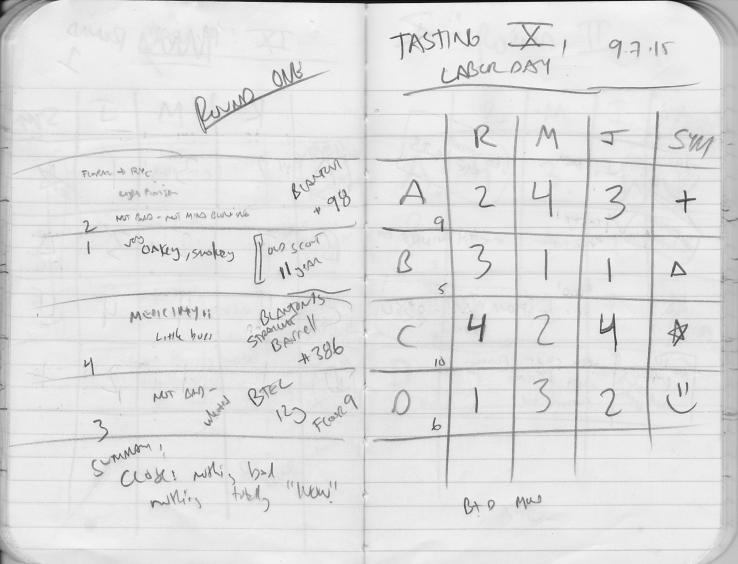 ROUND ONE
BLANTON
#98
NOT BAD - NOT MIND BLOWING
2
1 very OAKEY, smokey
OLD SCOUT
11 year
MEDICINY
Little burn
BLANTON'S
STRAIGHT
Barrell
#386
4
NOT BAD -
wheated
BTEC
12y
Floor 9
3
SUMMARY:
CLOSE! nothing bad
nothing totally "WOW!"
TASTING X, 9.7.15
LABOR DAY
R M J SYM
A 9 2 4 3 +
B 5 3 1 1 △
C 10 4 2 4 ☆
D 6 1 3 2